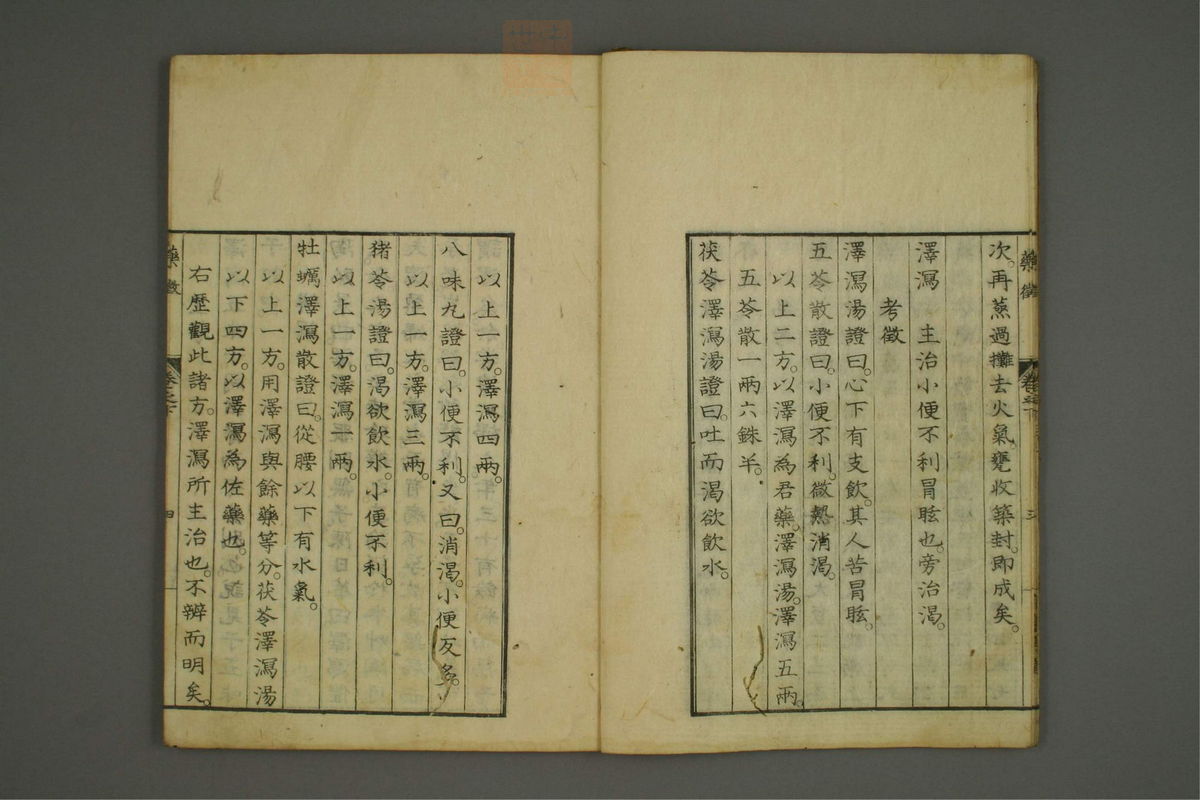 藥徵
卷之下
次。再蒸過攤去火氣甕收築封。即成矣。
澤瀉　主治小便不利冒眩也。旁治渴。
考徵
澤瀉湯證曰。心下有支飲。其人苦冒眩。
五苓散證曰。小便不利。微熱消渴。
以上二方。以澤瀉為君藥。澤瀉湯。澤瀉五兩。
五苓散一兩六銖半。
茯苓澤瀉湯證曰。吐而渴欲飲水。
以上一方。澤瀉四兩。
八味丸證曰。小便不利。又曰。消渴。小便反多。
以上一方。澤瀉三兩。
猪苓湯證曰。渴欲飲水。小便不利。
以上一方。澤瀉一兩。
牡蠣澤瀉散證曰。從腰以下有水氣。
以上一方。用澤瀉與餘藥等分。茯苓澤瀉湯
以下四方。以澤瀉為佐藥也。
右歷觀此諸方。澤瀉所主治也。不辨而明矣。
藥徵
卷之下
四